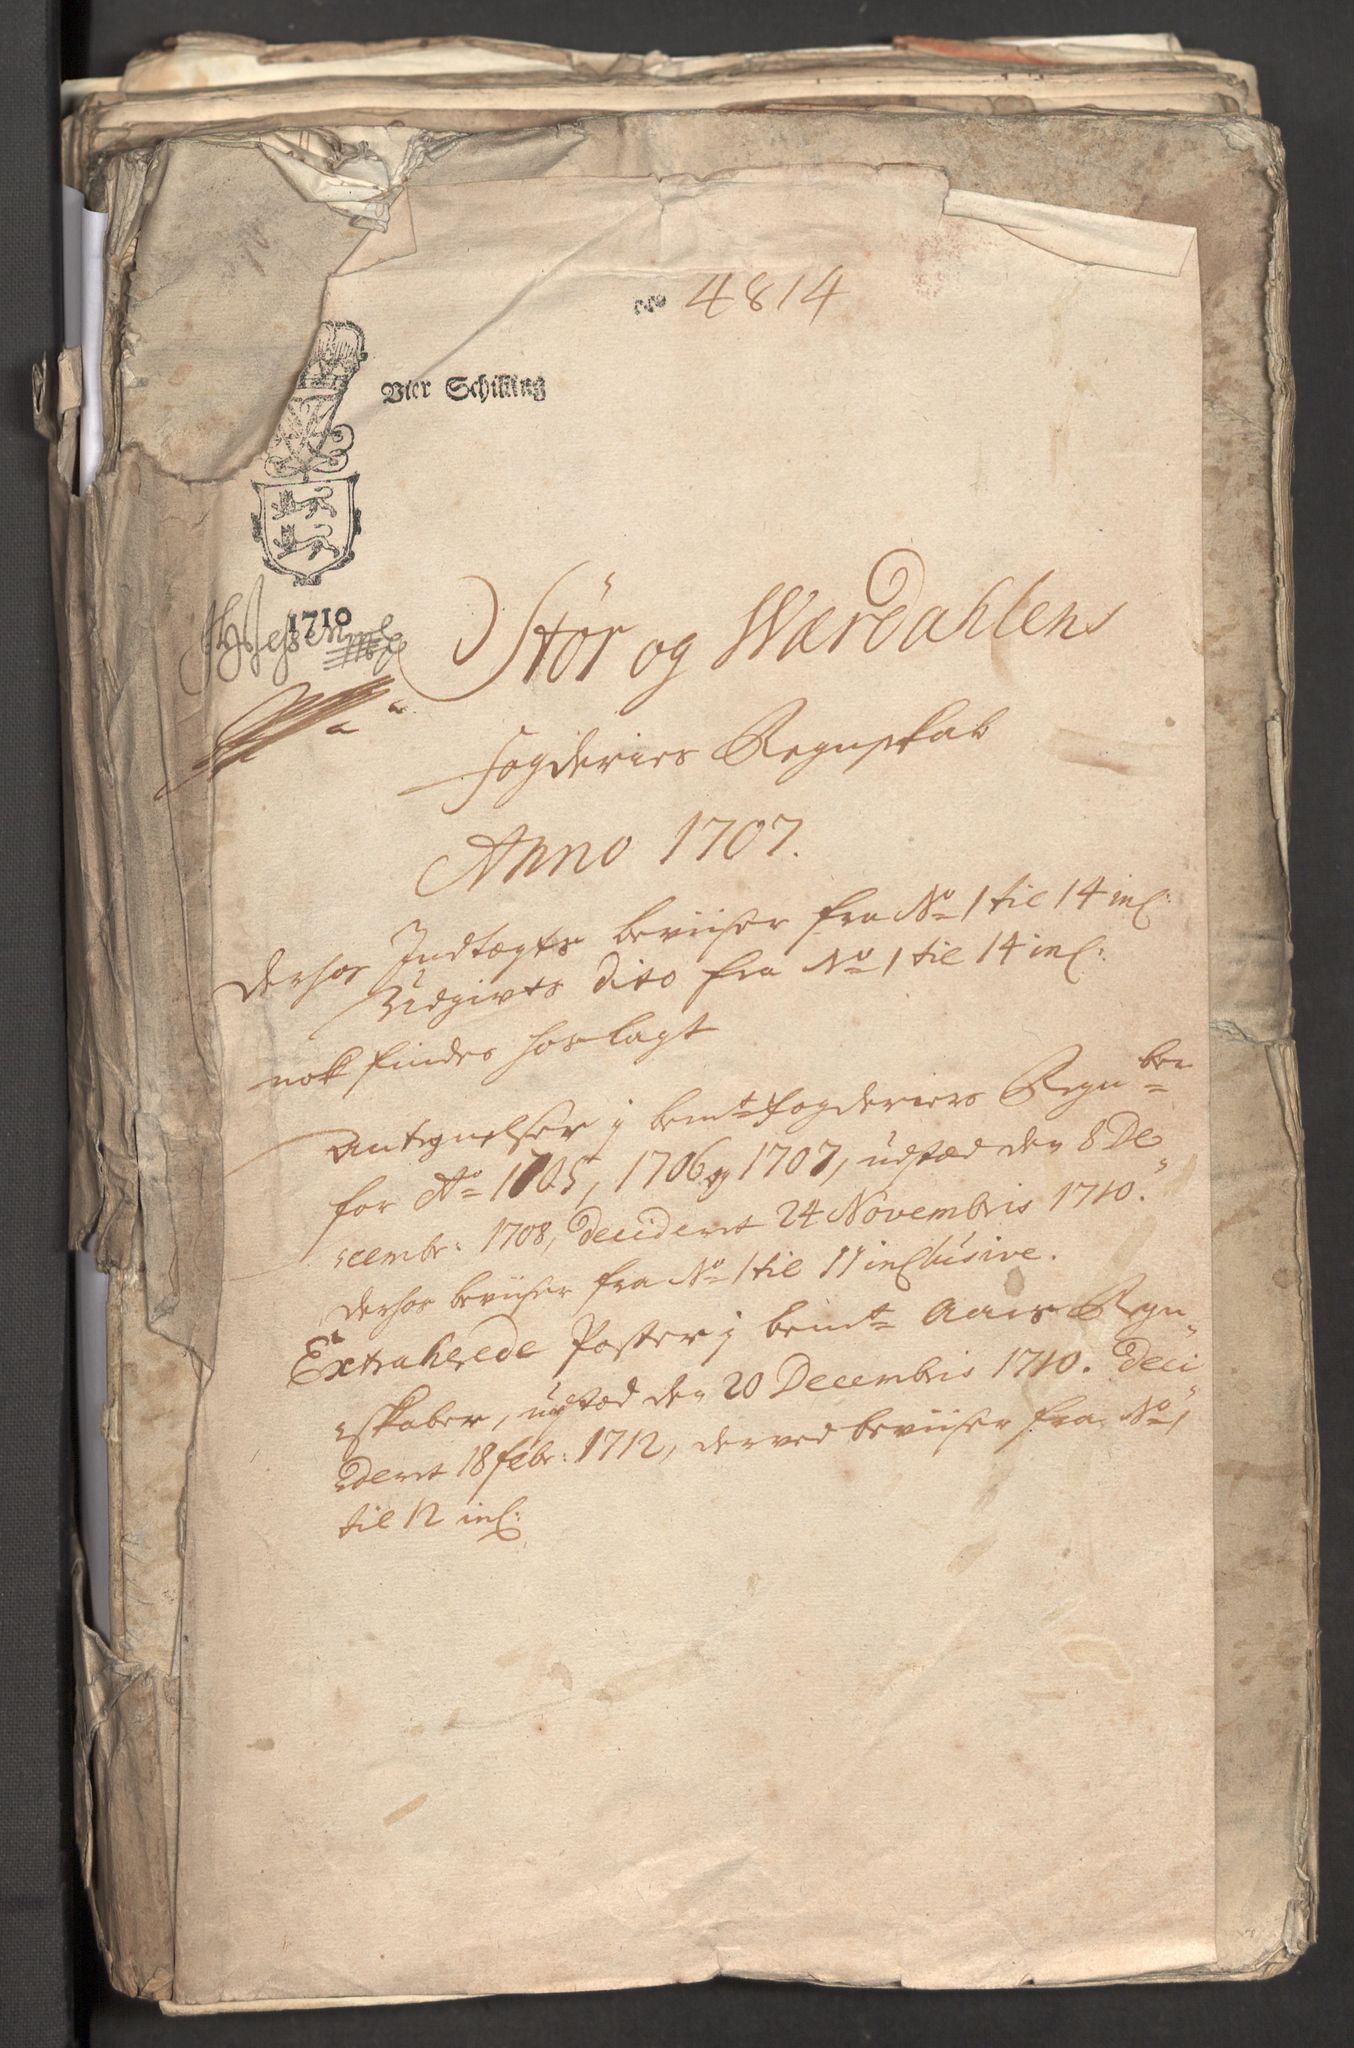 No 4814
Vier Schilling
1710
Stør og Wærdahlens
fogderies Regnskab
Anno 1707.
Derhos Indtægts beviiser fra No 1 til 14 incl:
Udgivts dito fra No 1 til 14 incl:
nok findes hoslagt
Antegnelser j bemte fogderiers Regnber
for Ao 1705, 1706 og 1707, udstæd den 8 De-
cembr: 1708, Decideret 24 Novembris 1710.
derhos beviiser fra No 1 til 11 inclusive.
Extraherede Poster j bemte Aars Regn-
skaber, udstæd den 20 Decembris 1710. Deci-
deret 18 febr: 1712, derved beviiser fra No 1
til 12 incl: